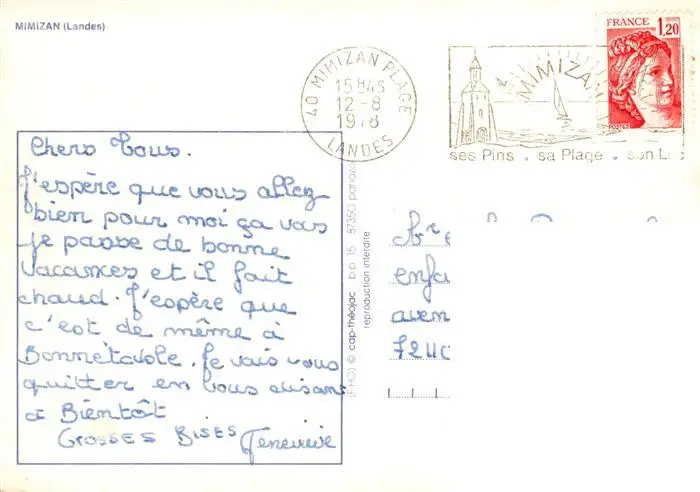 MIMIZAN (Landes)
40 MIMIZAN PLAGE
15H45
12-8
1978
LANDES
MIMIZAN
ses Pins . sa Plage . son Lac
FRANCE
1,20
POSTES
Chers Tous.
J'espère que vous allez
bien pour moi ça vas
je passe de bonne
vacances et il fait
chaud. J'espère que
c'est de même à
Bonnétable. Je vais vous
quitter en vous disant
à Bientôt
GROSSES BISES Geneviève
(F-HO) © cap-théojac b.p. 15 87350 panazol
reproduction interdite
enfa
aven